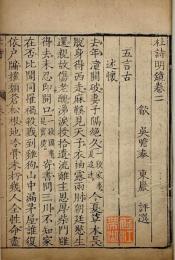 杜詩卷二
歙 吳瞻泰 東巖 評選
五言古
述懷
去年潼關破妻子隔絕久今夏草木長
脫身得西走麻鞋見天子衣袖露兩肘朝廷慜生
還親故傷老醜涕淚授拾遺流離主恩厚柴門雖
得去未忍即開口寄書問三川不知家
在否比聞同罹禍殺戮到雞狗山中漏茅屋誰復
依戶牖摧頹蒼松根地冷骨未朽幾人全性命盡